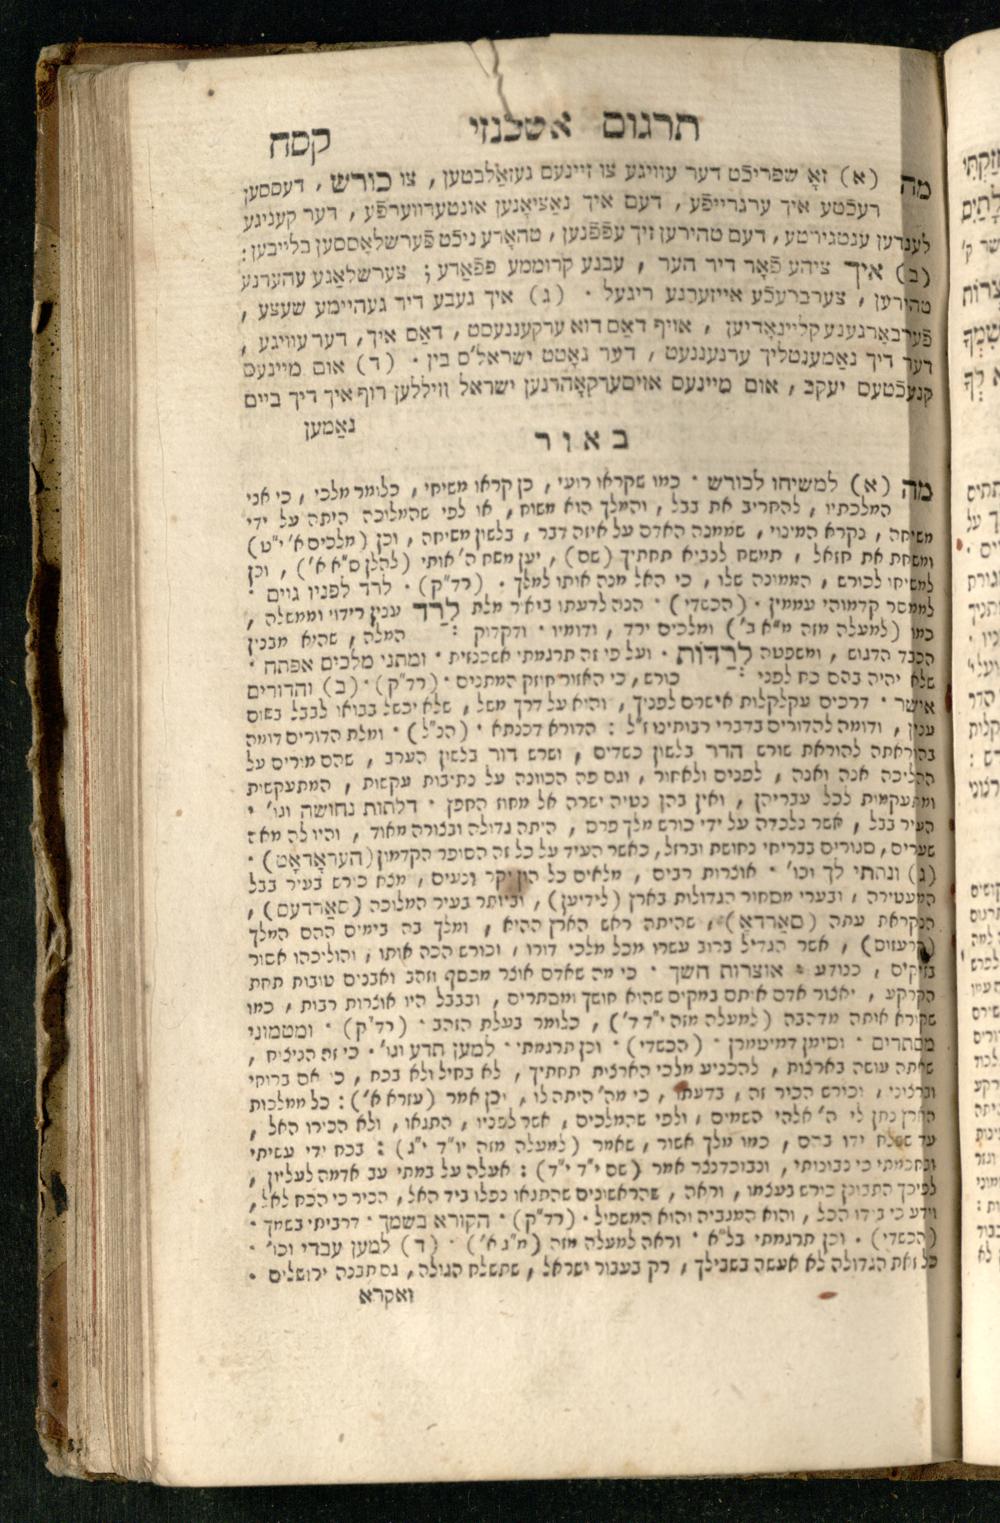 תרגום אשכנזי
קסח
מה (א) זאָ שפריכֿט דער עוויגע צו זיינעם געזאַלבטען, צו כורש, דעססען
רעכֿטע איך ערגרייפֿע, דעם איך נאַציאָנען אונטערווערפֿע, דער קעניגע
לענדען ענטגירטע, דעם טהירען זיך עפֿפֿנען, טהאָרע ניכֿט פֿערשלאָססען בלייבען:
(ב) איך ציהע פֿאָר דיר הער, עבנע קרוממע פפֿאַדע; צערשלאַגע עהערנע
טהירען, צערברעכֿע אייזערנע ריגעל · (ג) איך געבע דיר געהיימע שעצע,
פֿערבאָרגענע קליינאָדיען, אויף דאַם דוא ערקעננעסט, דאַם איך, דער עוויגע,
דער דיך נאַמענטליך ערנעננעט, דער גאָטט ישראל'ס בין · (ד) אום מיינעס
קנעכֿטעס יעקב, אום מיינעס אויסערקאָהרנען ישראל וויללען רוף איך דיך ביים
נאַמען
באור
מה (א) למשיחו לכורש · כמו שקראו רועי, כן קראו משיחי, כלומר מלכי, כי אני
המלכתיו, להחריב את בבל, והמלך הוא משוח, או לפי שהמלוכה היתה על ידי
משיחה, נקרא המינוי, שממנה האדם על איזה דבר, בלשון משיחה, וכן (מלכים א' י"ט)
ומשחת את חזאל, תמשח לנביא תחתיך (שם), יען משח ה' אותי (להלן ס"א א'), וכן
למשיחו לכורש, הממונה שלו, כי האל מנה אותו למלך · (רד"ק) · לרד לפניו גוים ·
לממסר קדמוהי עממין · (הכשדי) · הנה לדעתו ביאר מלת לְרַד ענין רידוי וממשלה,
כמו (למעלה מזה מ"א ב') ומלכים ירד, ודומיו · ודקדוק המלה, שהיא מבנין
הכבד הדגוש, ומשפטה לְרַדּוֹת · ועל פי זה תרגמתי אשכנזית · ומתני מלכים אפתח ·
שלא יהיה בהם כח לפני כורש, כי האזור חיזק המתנים · (רד"ק) · (ב) והדורים
אישר · דרכים עקלקלות אישרם לפניך, והוא על דרך משל, שלא יכשל בבואו לבבל בשום
ענין, ודומה להדורים בדברי רבותינו ז"ל: הדורא דכנתא · (הנ"ל) · ומלת הדורים דומה
בהוראתה להוראת שורש הדר בלשון כשדים, ושרש דור בלשון הערב, שהם מורים על
ההליכה אנה ואנה, לפנים ולאחור, וגם פה הכוונה על נתיבות עקשות, המתעקשית
ומתעקמות לכל עבריהן, ואין בהן נטיה ישרה אל מחוז החפץ · דלתות נחושה וגו' ·
העיר בבל, אשר נלכדה על ידי כורש מלך פרס, היתה גדולה ובצורה מאוד, והיו לה מאה
שערים, סגורים בבריחי נחושת וברזל, כאשר העיד על כל זה הסופר הקדמון (העראָדאָט) ·
(ג) ונתתי לך וכו' · אוצרות רבים, מלאים כל הון יקר ונעים, מצא כורש בעיר בבל
המעטירה, ובערי מסחור הגדולות בארץ (לידיען), וביותר בעיר המלוכה (סאַרדעס),
הנקראת עתה (סאַרדאַ), שהיתה ראש הארץ ההיא, ומלך בה בימים ההם המלך
(קרעזוס), אשר הגדיל ברוב עשרו מכל מלכי דורו, וכורש הכה אותו, והוליכהו אסור
בזיקים, כנודע · אוצרות חשך · כי מה שאדם אוצר מכסף וזהב ואבנים טובות תחת
הקרקע, יאצור אדם אותם במקום שהוא חושך ומסתרים, ובבבל היו אוצרות רבות, כמו
שקורא אותה מדהבה (למעלה מזה י"ד ד'), כלומר בעלת הזהב · (רד"ק) · ומטמוני
מסתרים · וסימן דמיטמרן · (הכשדי) · וכן תרגמתי · למען תדע וגו' · כי זה הניצוח,
שאתה עושה בארצות, להכניע מלכי הארצות תחתיך, לא בחיל ולא בכח, כי אם ברוחי
וברצוני, וכורש הכיר זה, בדעתו, כי מה' היתה לו, וכן אמר (עזרא א'): כל ממלכות
הארץ נתן לי ה' אלהי השמים, ולפי שהמלכים, אשר לפניו, התגאו, ולא הכירו האל,
עד ששלח ידו בהם, כמו מלך אשור, שאמר (למעלה מזה יו"ד י"ג): בכח ידי עשיתי
ובחכמתי כי נבונותי, ונבוכדנצר אמר (שם י"ד י"ד): אעלה על במתי עב אדמה לעליון,
לפיכך התבונן כורש בעצמו, וראה, שהראשונים שהתגאו נפלו ביד האל, הכיר כי הכח לאל,
וידע כי בידו הכל, והוא המגביה והוא המשפיל · (רד"ק) · הקורא בשמך · דרביתי בשמך ·
(הכשדי) · וכן תרגמתי בל"א · וראה למעלה מזה (מ"ג א') · (ד) למען עבדי וכו' ·
כל זאת הגדולה לא אעשה בשבילך, רק בעבור ישראל, שתשלח הגולה, גם תבנה ירושלים ·
ואקרא